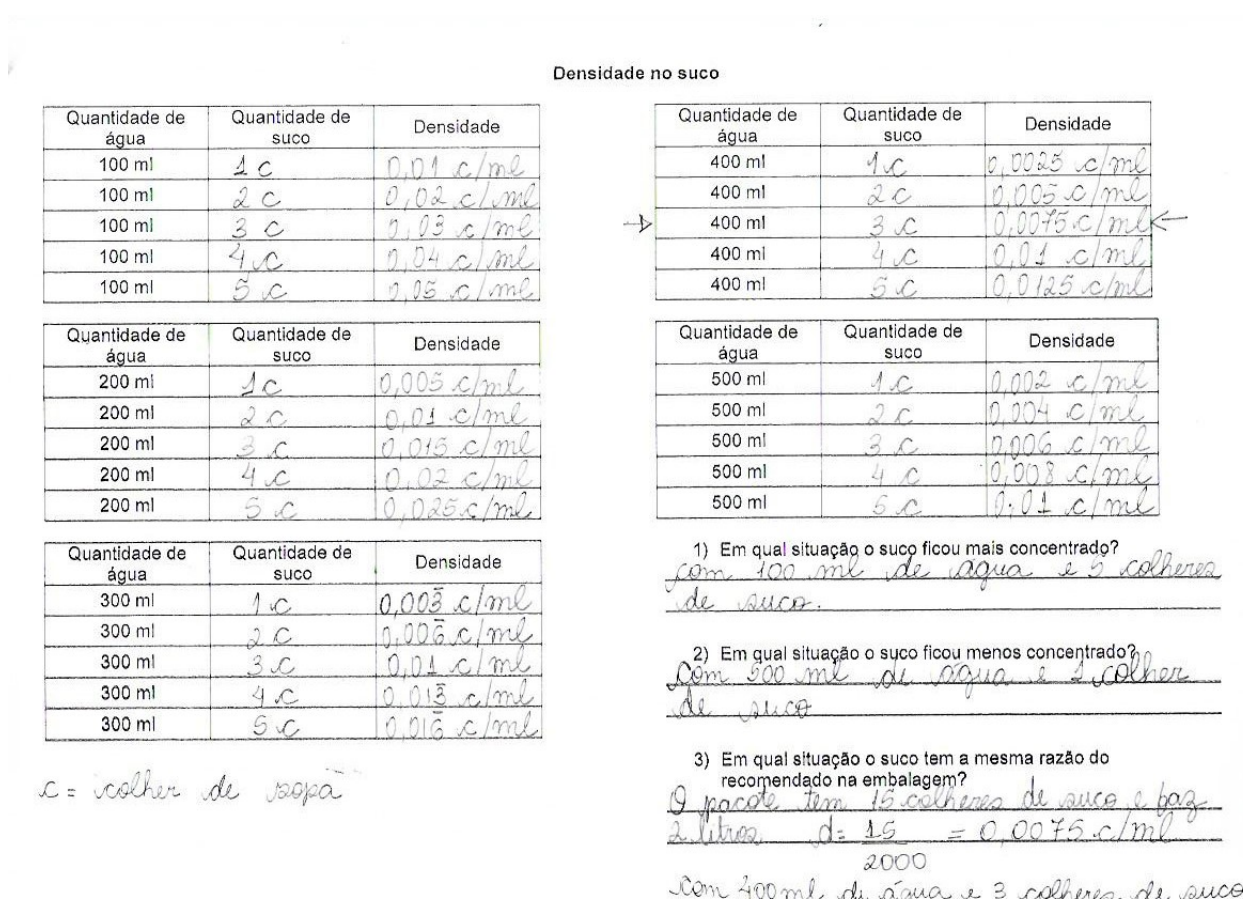 Densidade no suco
Quantidade de água Quantidade de suco Densidade
100 ml 1 c 0,01 c/ml
100 ml 2 c 0,02 c/ml
100 ml 3 c 0,03 c/ml
100 ml 4 c 0,04 c/ml
100 ml 5 c 0,05 c/ml
Quantidade de água Quantidade de suco Densidade
200 ml 1 c 0,005 c/ml
200 ml 2 c 0,01 c/ml
200 ml 3 c 0,015 c/ml
200 ml 4 c 0,02 c/ml
200 ml 5 c 0,025 c/ml
Quantidade de água Quantidade de suco Densidade
300 ml 1 c 0,003̄ c/ml
300 ml 2 c 0,006̄ c/ml
300 ml 3 c 0,01 c/ml
300 ml 4 c 0,013̄ c/ml
300 ml 5 c 0,016̄ c/ml
c = colher de sopa
Quantidade de água Quantidade de suco Densidade
400 ml 1 c 0,0025 c/ml
400 ml 2 c 0,005 c/ml
→ 400 ml 3 c 0,0075 c/ml ←
400 ml 4 c 0,01 c/ml
400 ml 5 c 0,0125 c/ml
Quantidade de água Quantidade de suco Densidade
500 ml 1 c 0,002 c/ml
500 ml 2 c 0,004 c/ml
500 ml 3 c 0,006 c/ml
500 ml 4 c 0,008 c/ml
500 ml 5 c 0,01 c/ml
1) Em qual situação o suco ficou mais concentrado?
com 100 ml de água e 5 colheres
de suco.
2) Em qual situação o suco ficou menos concentrado?
Com 500 ml de água e 1 colher
de suco
3) Em qual situação o suco tem a mesma razão do
recomendado na embalagem?
O pacote tem 15 colheres de suco e faz
2 litros. d= 15 = 0,0075 c/ml
2000
Com 400 ml de água e 3 colheres de suco